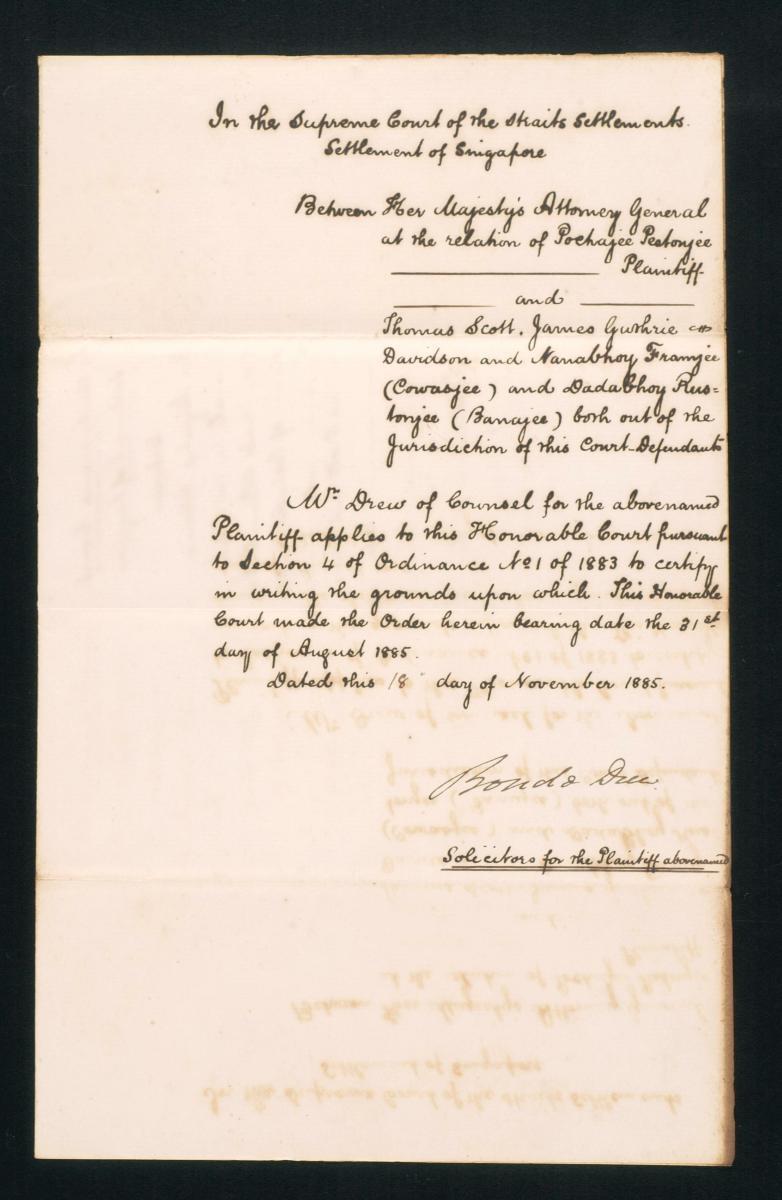 In the Supreme Court of the Straits Settlements.
Settlement of Singapore
Between Her Majesty's Attorney General
at the relation of Pochajee Pestonjee
Plaintiff
and
Thomas Scott, James Guthrie
Davidson and Nanabhoy Framjee
(Cowasjee) and Dadabhoy Rus=
tonjee (Banajee) both out of the
Jurisdiction of this Court-Defendants
Mr Drew of Counsel for the abovenamed
Plaintiff applies to this Honorable Court pursuant
to Section 4 of Ordinance No 1 of 1883 to certify
in writing the grounds upon which. This Honorable
Court made the Order herein bearing date the 31st
day of August 1885.
Dated this 18 day of November 1885.
Drew
Solicitors for the Plaintiff abovenamed